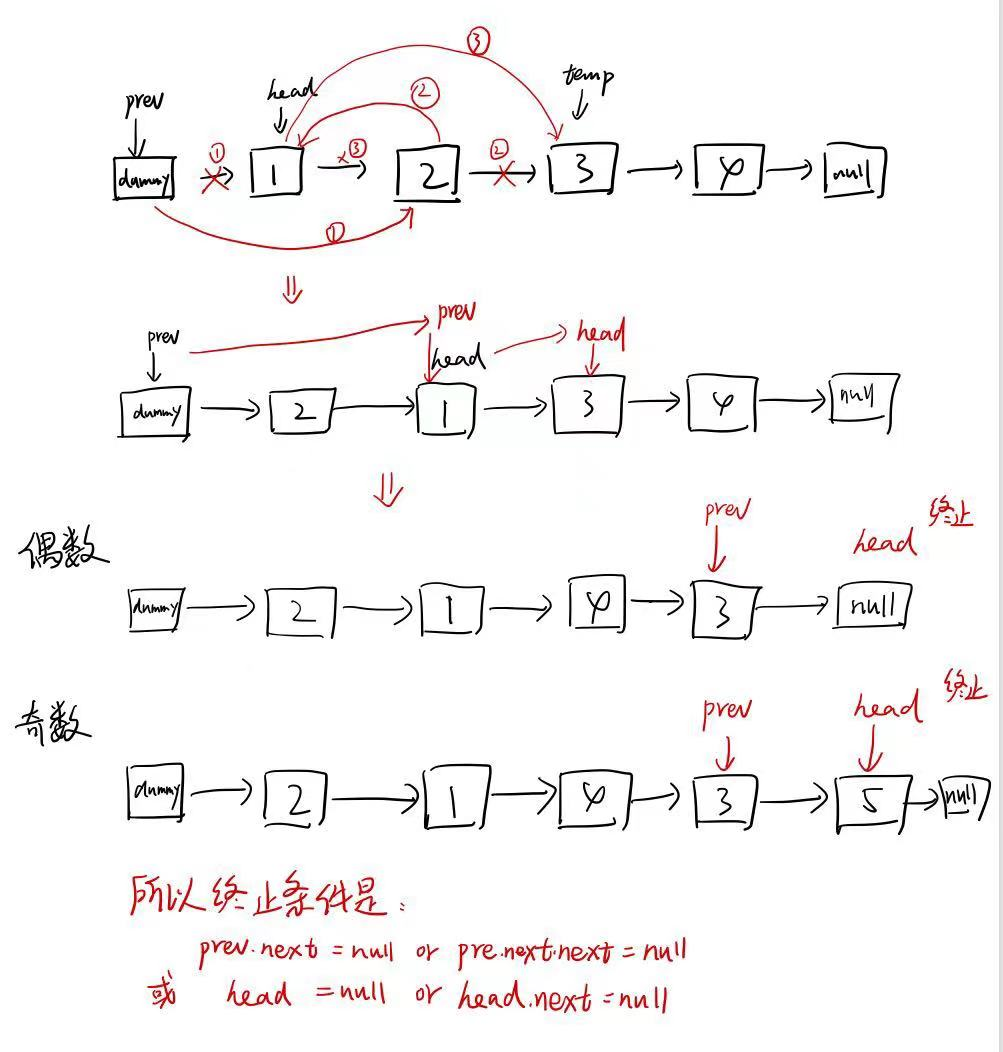 ③
prev head ② temp
① ×③ ②
dummy 1 2 3 4 null
①
prev
prev head head
dummy 2 1 3 4 null
prev head 终止
偶数
dummy 2 1 4 3 null
prev head 终止
奇数
dummy 2 1 4 3 5 null
所以终止条件是：
prev.next = null or pre.next.next = null
或 head = null or head.next = null